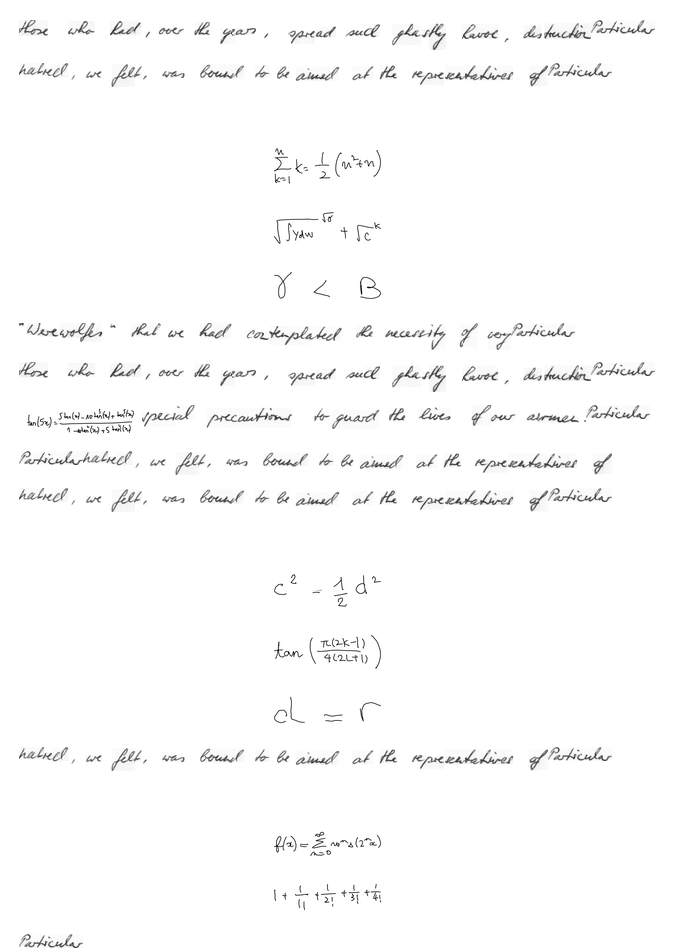 those who had, over the years, spread such ghastly havoc, destruction Particular
hatred, we felt, was bound to be aimed at the representatives of Particular
\sum_{k=1}^{n} k = \frac{1}{2}(n^2+n)
\sqrt{\int y dw}^{\sqrt{\sigma}} + \sqrt{c}^{k}
γ < B
"Werewolfes" that we had contemplated the necessity of very Particular
those who had, over the years, spread such ghastly havoc, destruction Particular
\tan(5x) = \frac{5\tan(x) - 10\tan^3(x) + \tan^5(x)}{1 - 10\tan^2(x) + 5\tan^4(x)} special precautions to guard the lives of our airmen. Particular
Particular hatred, we felt, was bound to be aimed at the representatives of
hatred, we felt, was bound to be aimed at the representatives of Particular
c^2 = \frac{1}{2} d^2
\tan\left(\frac{\pi(2k-1)}{4(2L+1)}\right)
dL = r
hatred, we felt, was bound to be aimed at the representatives of Particular
f(x) = \sum_{n=0}^{\infty} (2^n x)
1 + \frac{1}{1!} + \frac{1}{2!} + \frac{1}{3!} + \frac{1}{4!}
Particular